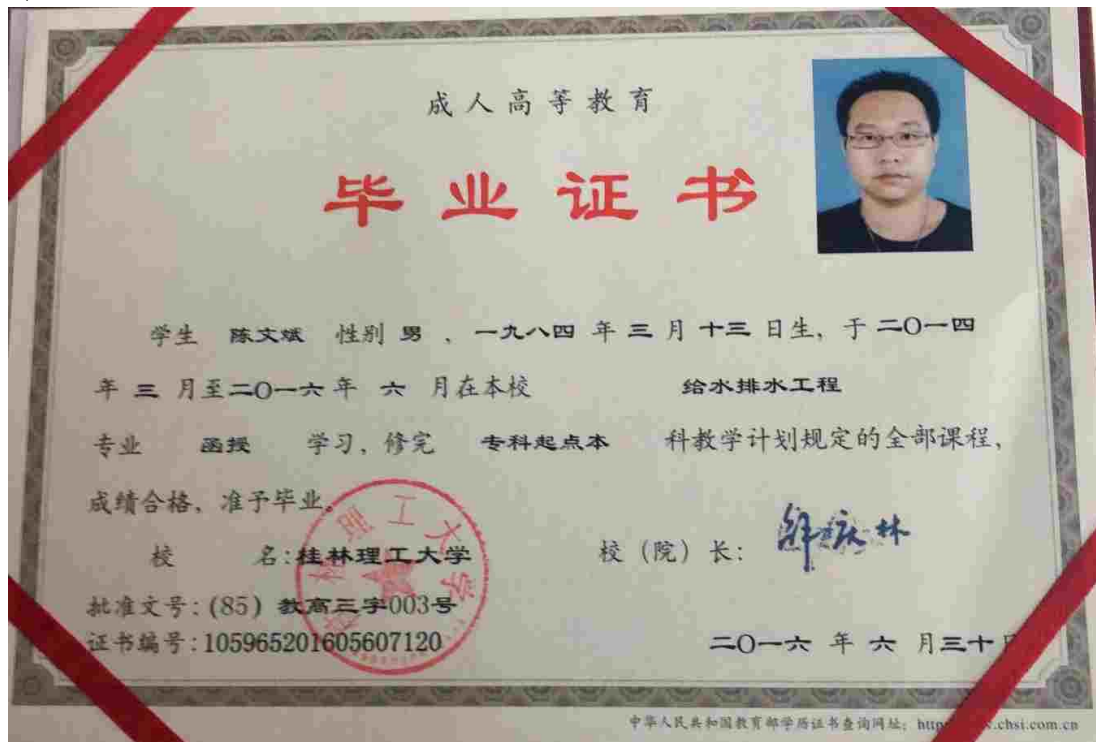 成人高等教育
毕业证书
学生 陈文斌 性别 男 ，一九八四 年 三 月 十三 日生，于 二O一四
年 三 月至二O一六年 六 月在本校 给水排水工程
专业 函授 学习，修完 专科起点本 科教学计划规定的全部课程，
成绩合格，准予毕业。
校 名：桂林理工大学 校（院）长：
批准文号：(85) 教高三字003号
证书编号：105965201605607120
二O一六 年 六 月三十日
中华人民共和国教育部学历证书查询网址：http .chsi.com.cn